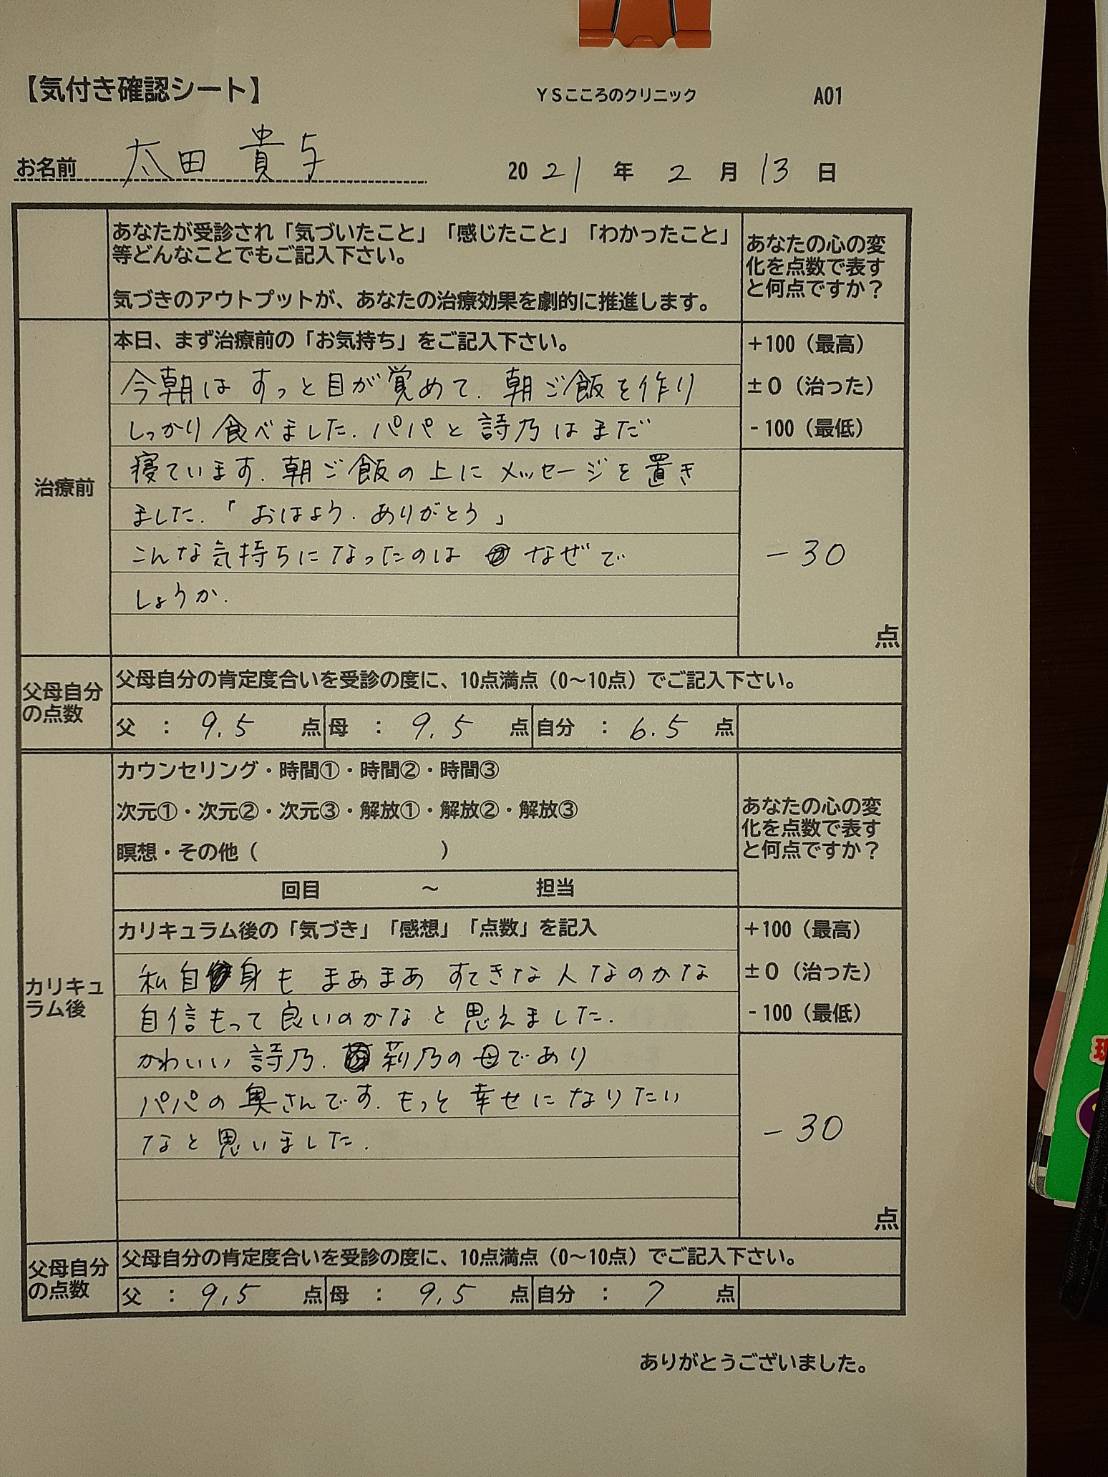 【気付き確認シート】 YSこころのクリニック A01
お名前 太田 貴与 2021年2月13日
あなたが受診され「気づいたこと」「感じたこと」「わかったこと」
等どんなことでもご記入下さい。
気づきのアウトプットが、あなたの治療効果を劇的に推進します。
あなたの心の変
化を点数で表す
と何点ですか？
治療前
本日、まず治療前の「お気持ち」をご記入下さい。
今朝はすっと目が覚めて、朝ご飯を作り
しっかり食べました。パパと詩乃はまだ
寝ています。朝ご飯の上にメッセージを置き
ました。「おはよう。ありがとう」
こんな気持ちになったのは なぜで
しょうか。
+100（最高）
±0（治った）
-100（最低）
-30
点
父母自分
の点数
父母自分の肯定度合いを受診の度に、10点満点（0～10点）でご記入下さい。
父 ： 9.5 点 母 ： 9.5 点 自分 ： 6.5 点
カウンセリング・時間①・時間②・時間③
次元①・次元②・次元③・解放①・解放②・解放③
瞑想・その他（ ）
回目 ～ 担当
あなたの心の変
化を点数で表す
と何点ですか？
カリキュ
ラム後
カリキュラム後の「気づき」「感想」「点数」を記入
私自身も まあまあ すてきな人なのかな
自信もって良いのかなと思えました。
かわいい詩乃、莉乃の母であり
パパの奥さんです。もっと幸せになりたい
なと思いました。
+100（最高）
±0（治った）
-100（最低）
-30
点
父母自分
の点数
父母自分の肯定度合いを受診の度に、10点満点（0～10点）でご記入下さい。
父 ： 9.5 点 母 ： 9.5 点 自分 ： 7 点
ありがとうございました。